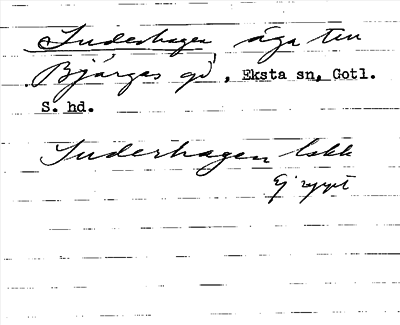 Suderhagen äga till
Bjärges gd, Eksta sn, Gotl.
S. hd.
Suderhagen lokk
Ej sypt